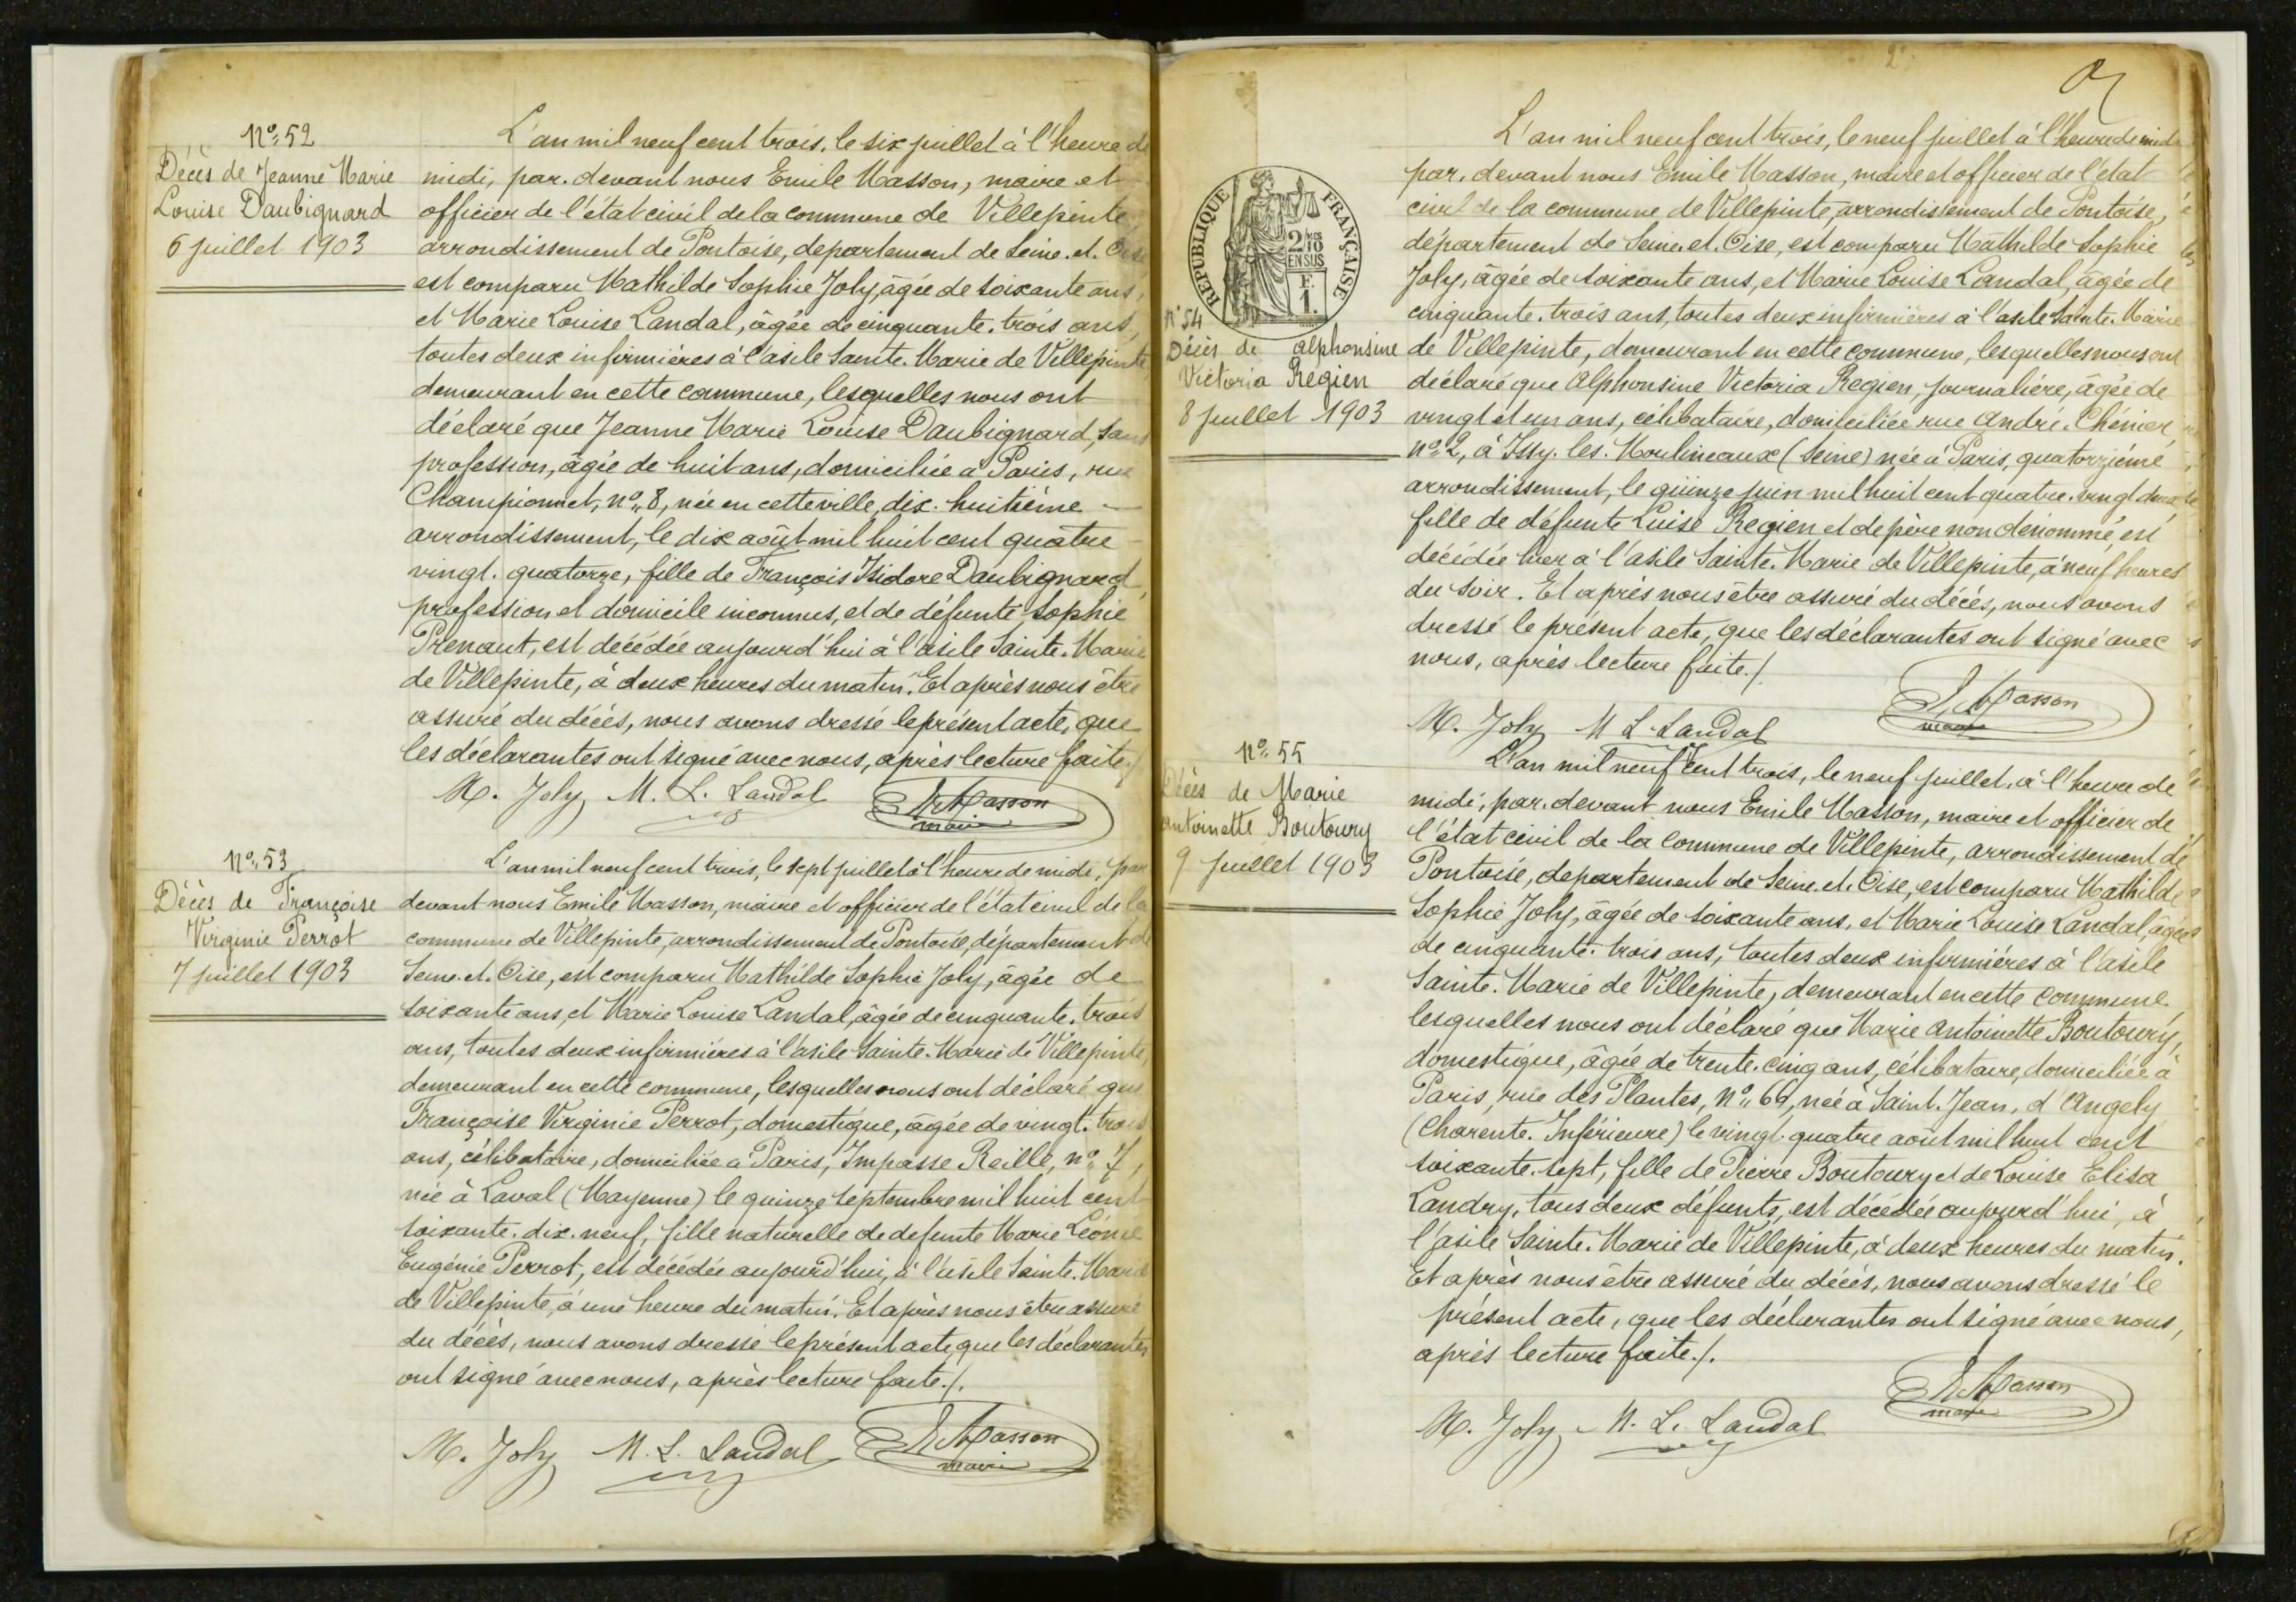 Nº 52
Décès de Jeanne Marie
Louise Daubignard
6 juillet 1903
L'an mil neuf cent trois, le six juillet à l'heure de
midi, par-devant nous Emile Masson, maire et
officier de l'état civil de la commune de Villepinte
arrondissement de Pontoise, département de Seine-et-Oise
est comparu Mathilde Sophie Joly, âgée de soixante ans,
et Marie Louise Landal, âgée de cinquante-trois ans,
toutes deux infirmières à l'asile Sainte-Marie de Villepinte,
demeurant en cette commune, lesquelles nous ont
déclaré que Jeanne Marie Louise Daubignard, sans
profession, âgée de huit ans, domiciliée à Paris, rue
Championnet, nº 8, née en cette ville, dix-huitième
arrondissement, le dix août mil huit cent quatre
vingt-quatorze, fille de François Isidore Daubignard,
profession et domicile inconnus, et de défunte Sophie
Prenaut, est décédée aujourd'hui à l'asile Sainte-Marie
de Villepinte, à deux heures du matin. Et après nous être
assuré du décès, nous avons dressé le présent acte, que
les déclarantes ont signé avec nous, après lecture faite./.
M. Joly M. L. Landal E. Masson
maire
Nº 53
Décès de Françoise
Virginie Perrot
7 juillet 1903
L'an mil neuf cent trois, le sept juillet à l'heure de midi, par
devant nous Emile Masson, maire et officier de l'état civil de la
commune de Villepinte, arrondissement de Pontoise, département de
Seine-et-Oise, est comparu Mathilde Sophie Joly, âgée de
soixante ans, et Marie Louise Landal, âgée de cinquante-trois
ans, toutes deux infirmières à l'asile Sainte-Marie de Villepinte,
demeurant en cette commune, lesquelles nous ont déclaré que
Françoise Virginie Perrot, domestique, âgée de vingt-trois
ans, célibataire, domiciliée à Paris, Impasse Reille, nº 7,
née à Laval (Mayenne) le quinze septembre mil huit cent
soixante-dix-neuf, fille naturelle de défunte Marie Léonie
Eugénie Perrot, est décédée aujourd'hui, à l'asile Sainte-Marie
de Villepinte, à une heure du matin. Et après nous être assuré
du décès, nous avons dressé le présent acte que les déclarantes
ont signé avec nous, après lecture faite./.
M. Joly M. L. Landal E. Masson
maire
RÉPUBLIQUE FRANÇAISE
2/10
EN SUS
F.
1.
Nº 54
Décès de Alphonsine
Victoria Regien
8 juillet 1903
L'an mil neuf cent trois, le neuf juillet à l'heure de midi
par-devant nous Emile Masson, maire et officier de l'état
civil de la commune de Villepinte, arrondissement de Pontoise,
département de Seine-et-Oise, est comparu Mathilde Sophie
Joly, âgée de soixante ans, et Marie Louise Landal, âgée de
cinquante-trois ans, toutes deux infirmières à l'asile Sainte-Marie
de Villepinte, demeurant en cette commune, lesquelles nous ont
déclaré que Alphonsine Victoria Regien, journalière, âgée de
vingt et un ans, célibataire, domiciliée rue André-Chénier,
nº 2, à Issy-les-Moulineaux (Seine) née à Paris, quatorzième
arrondissement, le quinze juin mil huit cent quatre-vingt deux
fille de défunte Luise Regien et de père non dénommé, est
décédée hier à l'asile Sainte-Marie de Villepinte, à neuf heures
du soir. Et après nous être assuré du décès, nous avons
dressé le présent acte, que les déclarantes ont signé avec
nous, après lecture faite./.
M. Joly M L. Landal E. Masson
maire
Nº 55
Décès de Marie
Antoinette Boutoury
9 juillet 1903
L'an mil neuf cent trois, le neuf juillet, à l'heure de
midi, par-devant nous Emile Masson, maire et officier de
l'état civil de la commune de Villepinte, arrondissement de
Pontoise, département de Seine-et-Oise, est comparu Mathilde
Sophie Joly, âgée de soixante ans, et Marie Louise Landal, âgée
de cinquante-trois ans, toutes deux infirmières à l'asile
Sainte-Marie de Villepinte, demeurant en cette commune.
lesquelles nous ont déclaré que Marie Antoinette Boutoury,
domestique, âgée de trente-cinq ans, célibataire, domiciliée à
Paris, rue des Plantes, nº 66, née à Saint-Jean, d'Angely
(Charente-Inférieure) le vingt-quatre août mil huit cent
soixante-sept, fille de Pierre Boutoury et de Louise Elisa
Landry, tous deux défunts, est décédée aujourd'hui, à
l'asile Sainte-Marie de Villepinte, à deux heures du matin.
Et après nous être assuré du décès, nous avons dressé le
présent acte, que les déclarantes ont signé avec nous,
après lecture faite./.
M. Joly M. L. Landal E. Masson
maire